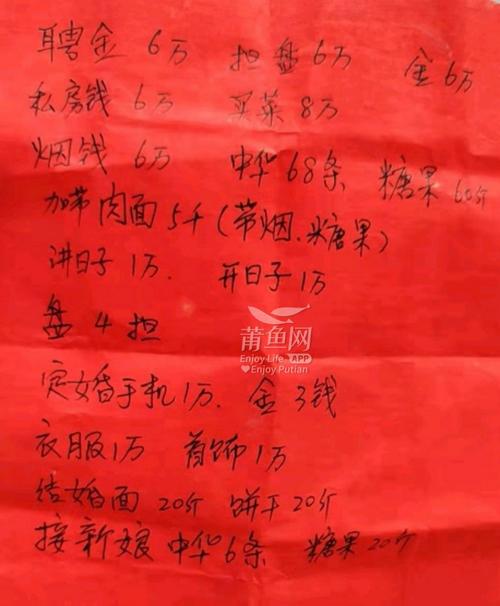 聘金 6万 担盘6万 金6万
私房钱 6万 买菜 8万
烟钱 6万 中华68条 糖果 60斤
加带肉面5千(带烟、糖果)
讲日子 1万. 开日子1万
盘 4 担
莆鱼网
Enjoy Life APP
Enjoy Putian
定婚手机1万. 金 3钱
衣服1万 首饰1万
结婚面 20斤 饼干20斤
接新娘 中华6条 糖果20斤